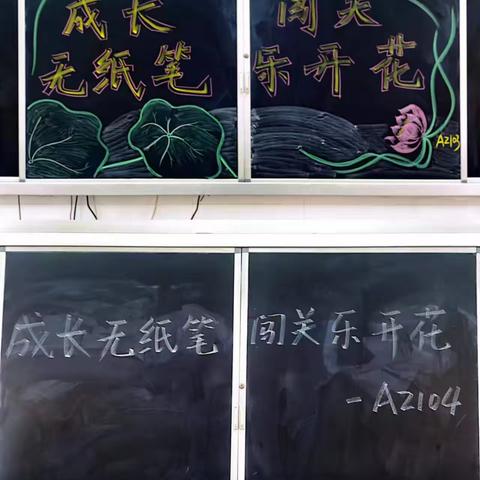 成长 闯关
无纸笔 乐开花
AZ103
成长无纸笔 闯关乐开花
-AZ104